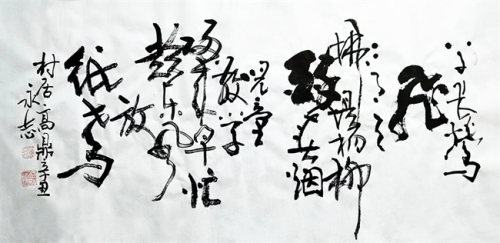 草长莺
飛
二月天
拂堤杨柳
醉春烟
児童
散学
归来早忙
趁东风
放
纸鸢
村居高鼎辛丑
永志